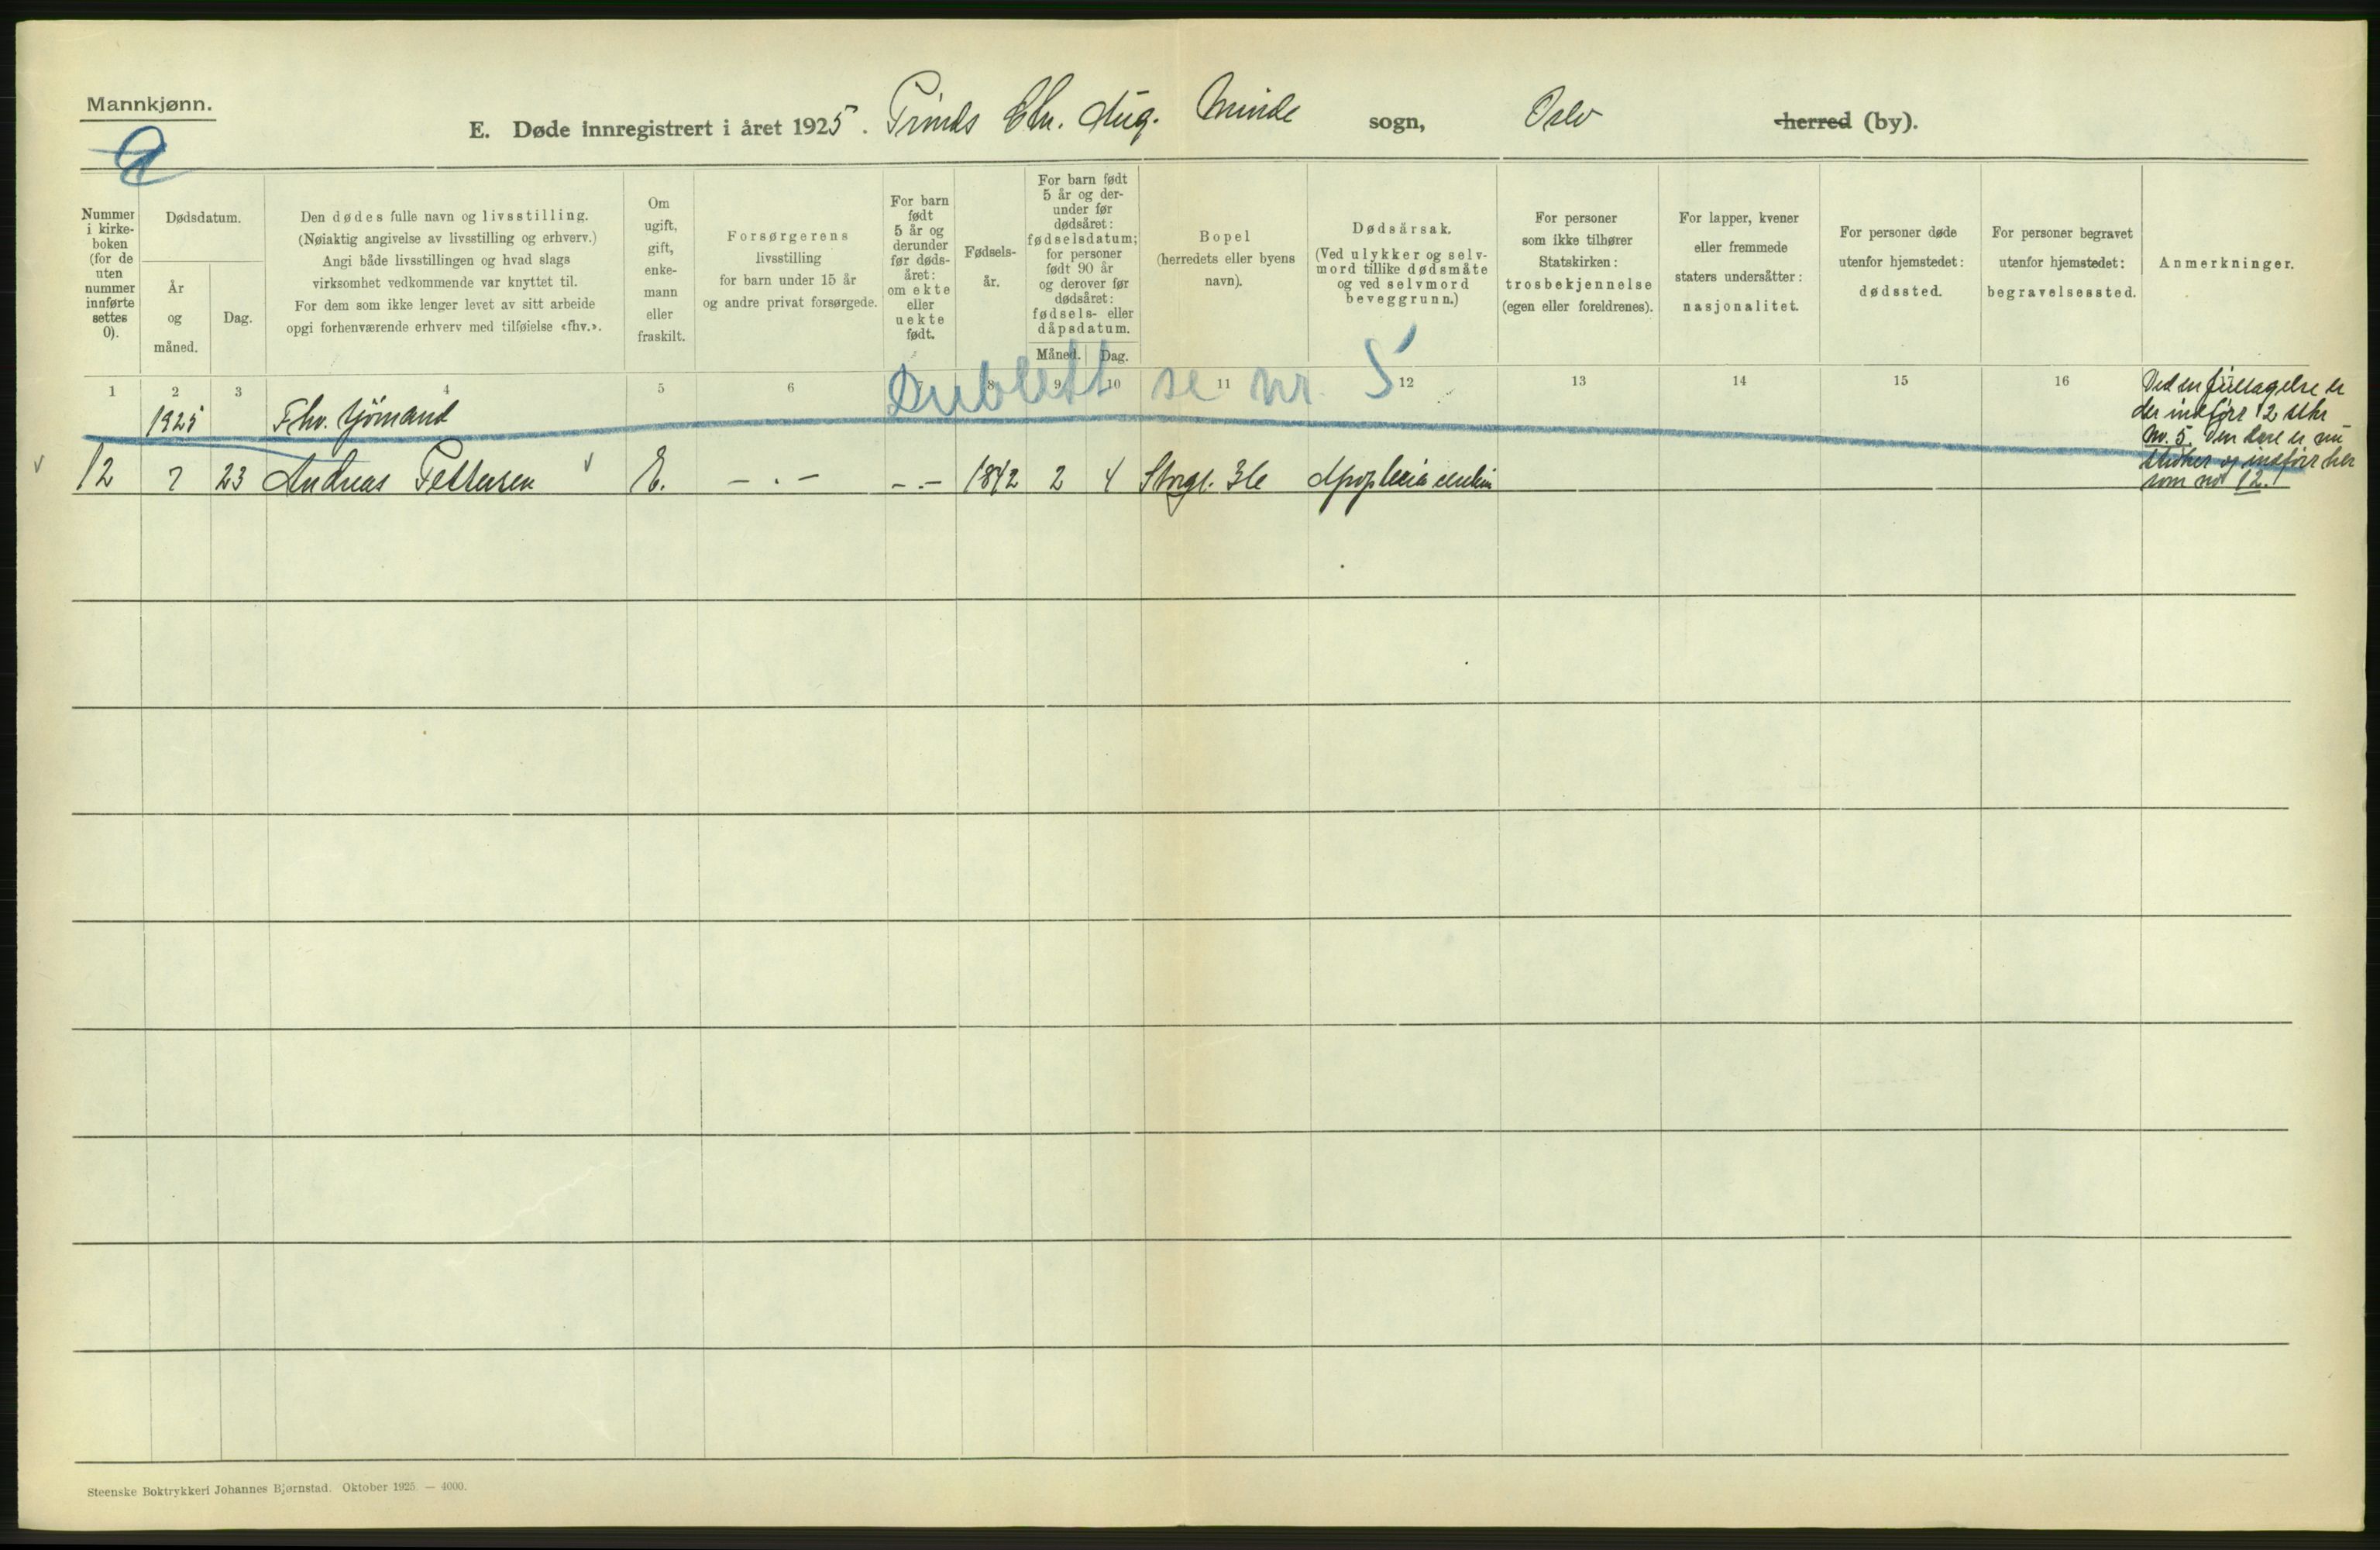 Mannkjønn.
a
E. Døde innregistrert i året 1925. Prinds Chr. Aug. Minde sogn, Oslo herred (by).
Nummer i kirke-boken (for de uten nummer innførte settes 0).
Dødsdatum.
År og måned.
Dag.
Den dødes fulle navn og livsstilling.
(Nøiaktig angivelse av livsstilling og erhverv.)
Angi både livsstillingen og hvad slags
virksomhet vedkommende var knyttet til.
For dem som ikke lenger levet av sitt arbeide
opgi forhenværende erhverv med tilføielse «fhv.».
Om ugift, gift, enke-mann eller fraskilt.
Forsørgerens
livsstilling
for barn under 15 år
og andre privat forsørgede.
For barn født 5 år og derunder før døds-året: om ekte eller uekte født.
Fødsels-år.
For barn født
5 år og der-
under før
dødsåret:
fødselsdatum;
for personer
født 90 år
og derover før
dødsåret:
fødsels- eller
dåpsdatum.
Måned. Dag.
Bopel
(herredets eller byens
navn).
Dødsårsak.
(Ved ulykker og selv-
mord tillike dødsmåte
og ved selvmord
beveggrunn.)
For personer
som ikke tilhører
Statskirken:
trosbekjennelse
(egen eller foreldrenes).
For lapper, kvener
eller fremmede
staters undersåtter:
nasjonalitet.
For personer døde
utenfor hjemstedet:
dødssted.
For personer begravet
utenfor hjemstedet:
begravelsessted.
Anmerkninger.
1 2 3 4 5 6 7 8 9 10 11 12 13 14 15 16
Dublett se nr. 5
1925 Fhv. sjömand
12 7 23 Andreas Pettersen E. – . – – . – 1842 2 4 Storgt. 36 Apoplexia cerebri
Ved en fuldtagelse er
der indført 2 stkr
Nr. 5. Den ene er nu
strøket og indført her
som no 12.
Steenske Boktrykkeri Johannes Bjørnstad. Oktober 1925. — 4000.